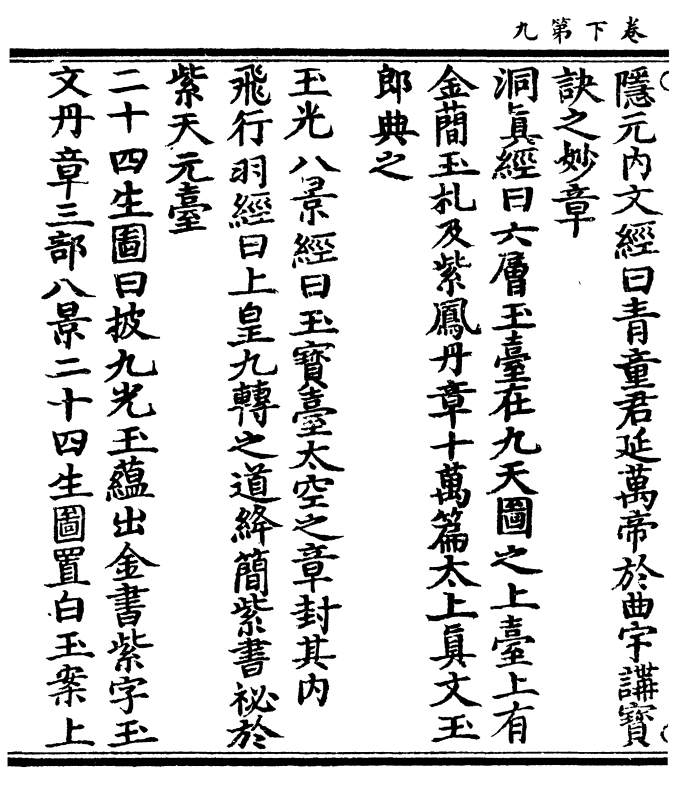 卷下第九
隱元內文經曰青童君延萬帝於曲宇講寶
訣之妙章
洞眞經曰六層玉臺在九天圖之上臺上有
金蕳玉札及紫鳳丹章十萬篇太上眞文玉
郎典之
玉光八景經曰玉寶臺太空之章封其內
飛行羽經曰上皇九轉之道絳簡紫書祕於
紫天元臺
二十四生圖曰披九光玉蘊出金書紫字玉
文丹章三部八景二十四生圖置白玉案上